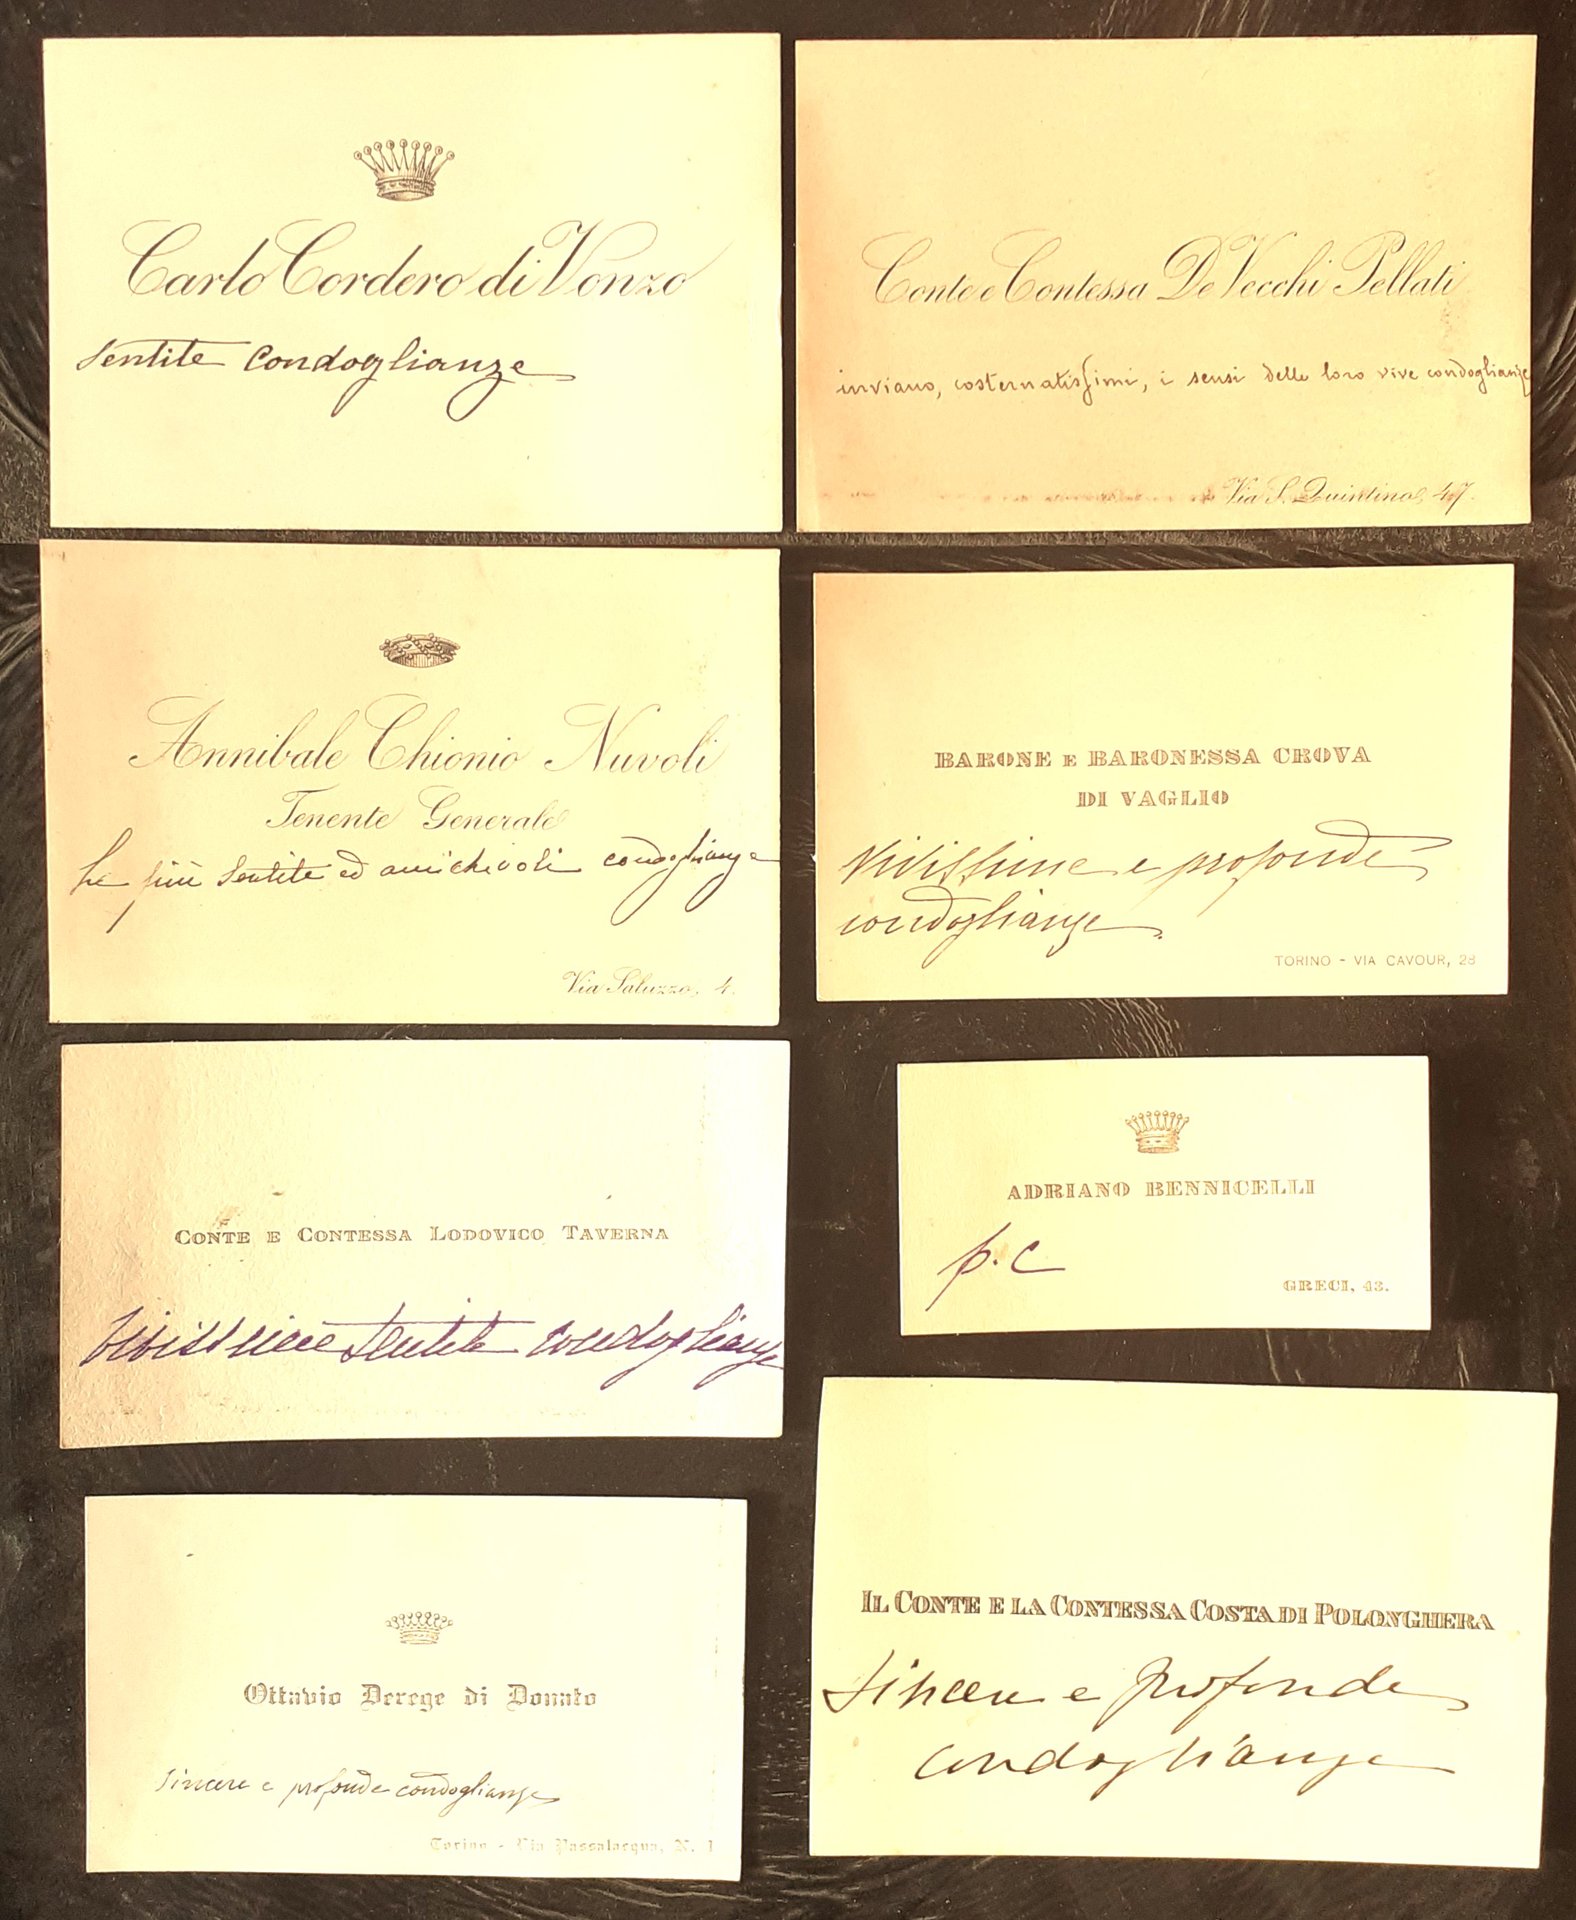 Carlo Cordero di Vonzo
sentite condoglianze
Conte e Contessa De Vecchi Pellati
inviano, costernatissimi, i sensi delle loro vive condoglianze
Via S. Quintino, 47.
Annibale Chionio Nuvoli
Tenente Generale
Le più sentite ed amichevoli condoglianze
Via Saluzzo, 4.
BARONE E BARONESSA CROVA
DI VAGLIO
Vivissime e profonde
condoglianze.
TORINO - VIA CAVOUR, 28
CONTE E CONTESSA LODOVICO TAVERNA
vivissime sentite condoglianze
ADRIANO BENNICELLI
p.c
GRECI, 43.
Ottavio Derege di Donato
sincere e profonde condoglianze
Torino - Via Passalacqua, N. 1
IL CONTE E LA CONTESSA COSTA DI POLONGHERA
Sincere e profonde
condoglianze